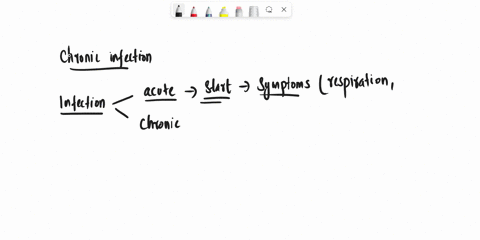 Chronic infection
Infection < acute → start → Symptoms (respiration,
chronic